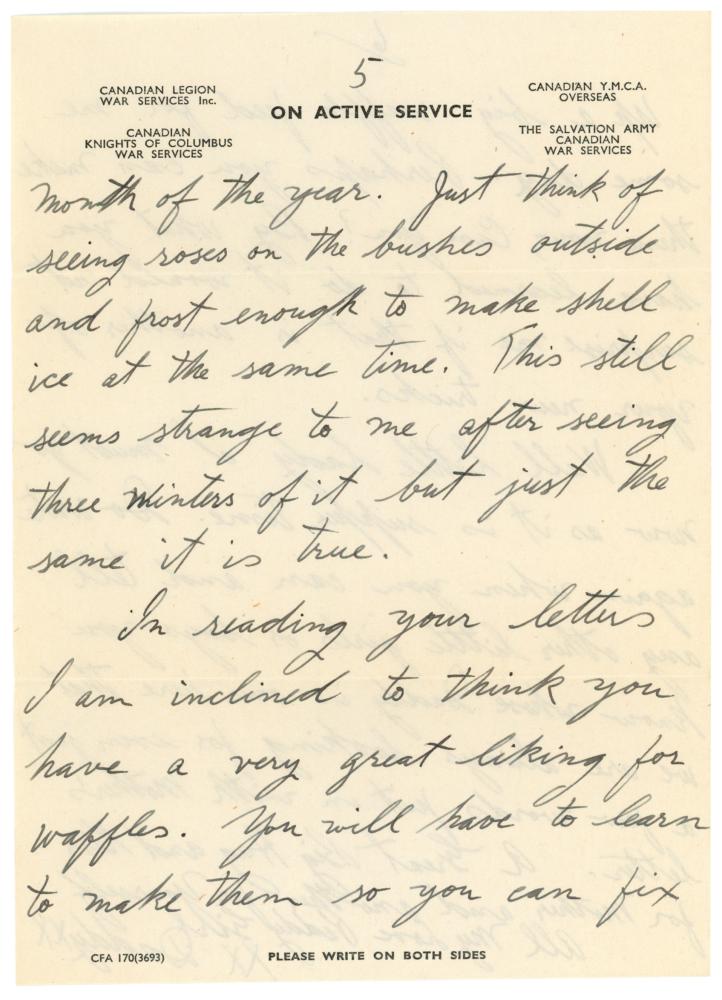 5
CANADIAN LEGION
WAR SERVICES Inc.
CANADIAN
KNIGHTS OF COLUMBUS
WAR SERVICES
ON ACTIVE SERVICE
CANADIAN Y.M.C.A.
OVERSEAS
THE SALVATION ARMY
CANADIAN
WAR SERVICES
month of the year. Just think of
seeing roses on the bushes outside
and frost enough to make shell
ice at the same time. This still
seems strange to me after seeing
three winters of it but just the
same it is true.
In reading your letters
I am inclined to think you
have a very great liking for
waffles. You will have to learn
to make them so you can fix
CFA 170(3693)
PLEASE WRITE ON BOTH SIDES